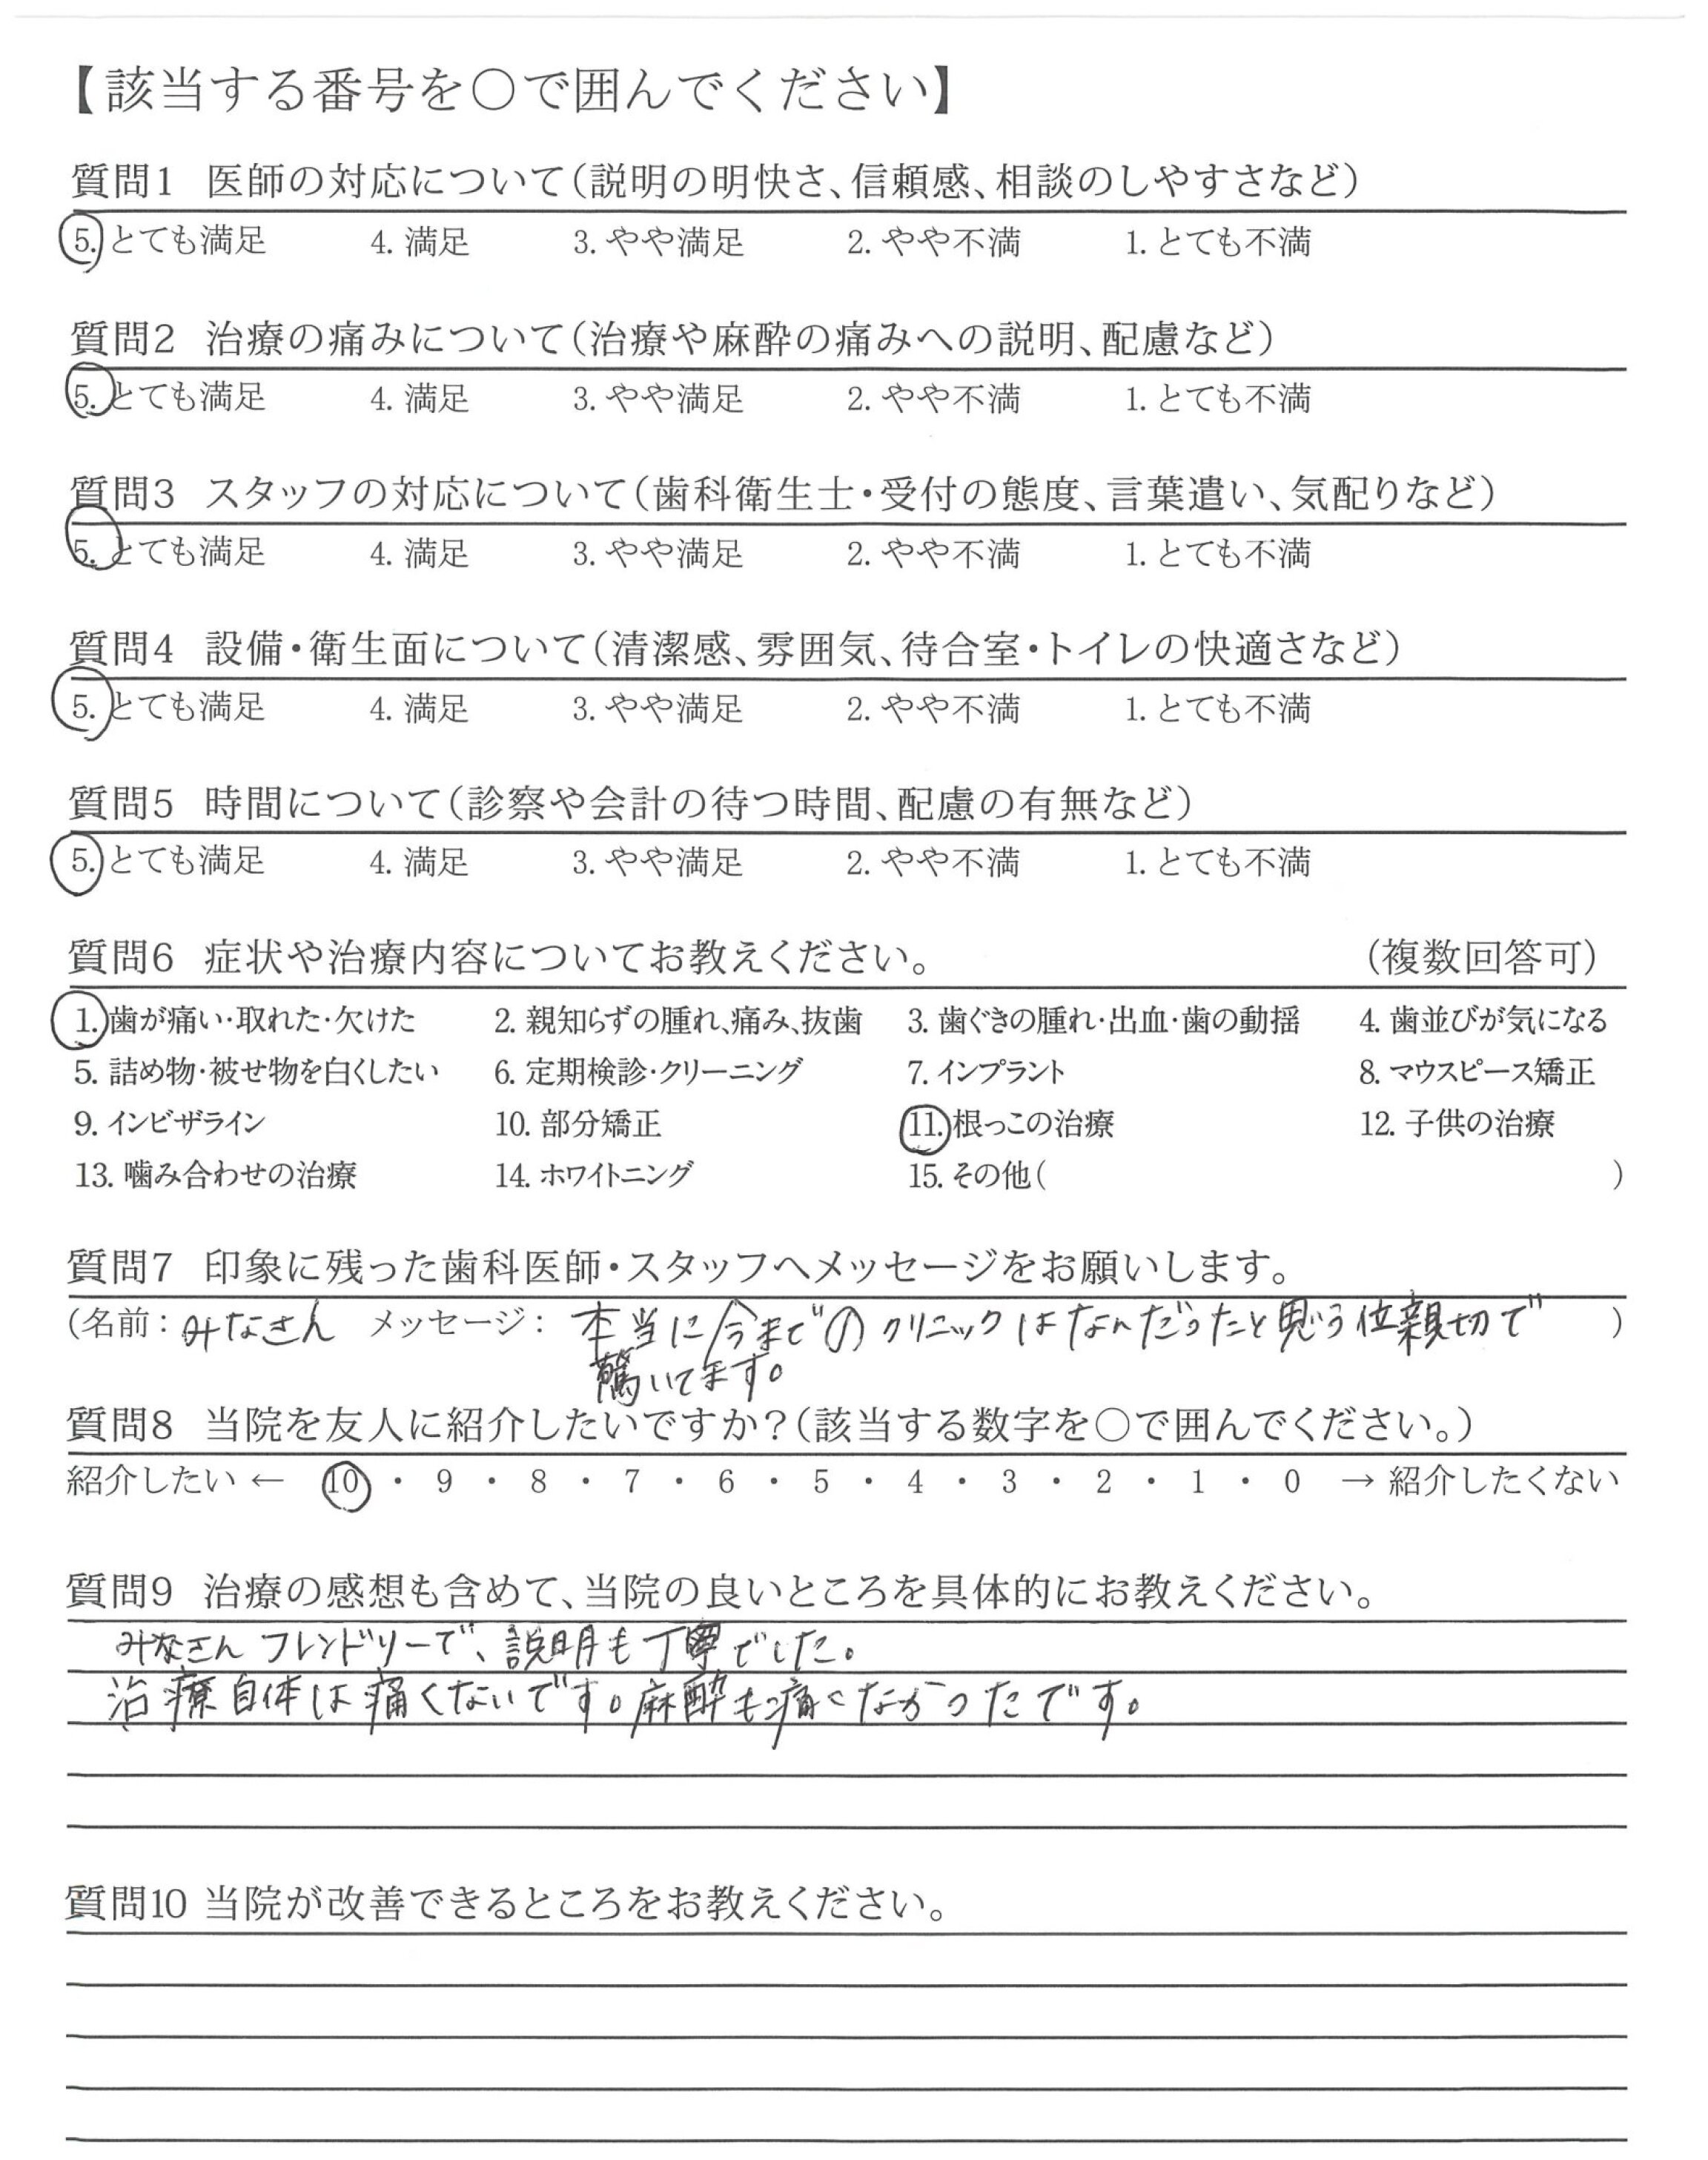 【該当する番号を○で囲んでください】
質問1 医師の対応について(説明の明快さ、信頼感、相談のしやすさなど)
5. とても満足 4. 満足 3. やや満足 2. やや不満 1. とても不満
質問2 治療の痛みについて(治療や麻酔の痛みへの説明、配慮など)
5. とても満足 4. 満足 3. やや満足 2. やや不満 1. とても不満
質問3 スタッフの対応について(歯科衛生士・受付の態度、言葉遣い、気配りなど)
5. とても満足 4. 満足 3. やや満足 2. やや不満 1. とても不満
質問4 設備・衛生面について(清潔感、雰囲気、待合室・トイレの快適さなど)
5. とても満足 4. 満足 3. やや満足 2. やや不満 1. とても不満
質問5 時間について(診察や会計の待つ時間、配慮の有無など)
5. とても満足 4. 満足 3. やや満足 2. やや不満 1. とても不満
質問6 症状や治療内容についてお教えください。 (複数回答可)
1. 歯が痛い・取れた・欠けた 2. 親知らずの腫れ、痛み、抜歯 3. 歯ぐきの腫れ・出血・歯の動揺 4. 歯並びが気になる
5. 詰め物・被せ物を白くしたい 6. 定期検診・クリーニング 7. インプラント 8. マウスピース矯正
9. インビザライン 10. 部分矯正 11. 根っこの治療 12. 子供の治療
13. 噛み合わせの治療 14. ホワイトニング 15. その他( )
質問7 印象に残った歯科医師・スタッフへメッセージをお願いします。
(名前: みなさん メッセージ: 本当に今までのクリニックはなんだったと思う位親切で )
驚いてます。
質問8 当院を友人に紹介したいですか?(該当する数字を○で囲んでください。)
紹介したい ← 10 ・ 9 ・ 8 ・ 7 ・ 6 ・ 5 ・ 4 ・ 3 ・ 2 ・ 1 ・ 0 → 紹介したくない
質問9 治療の感想も含めて、当院の良いところを具体的にお教えください。
みなさんフレンドリーで、説明も丁寧でした。
治療自体は痛くないです。麻酔も痛くなかったです。
質問10 当院が改善できるところをお教えください。